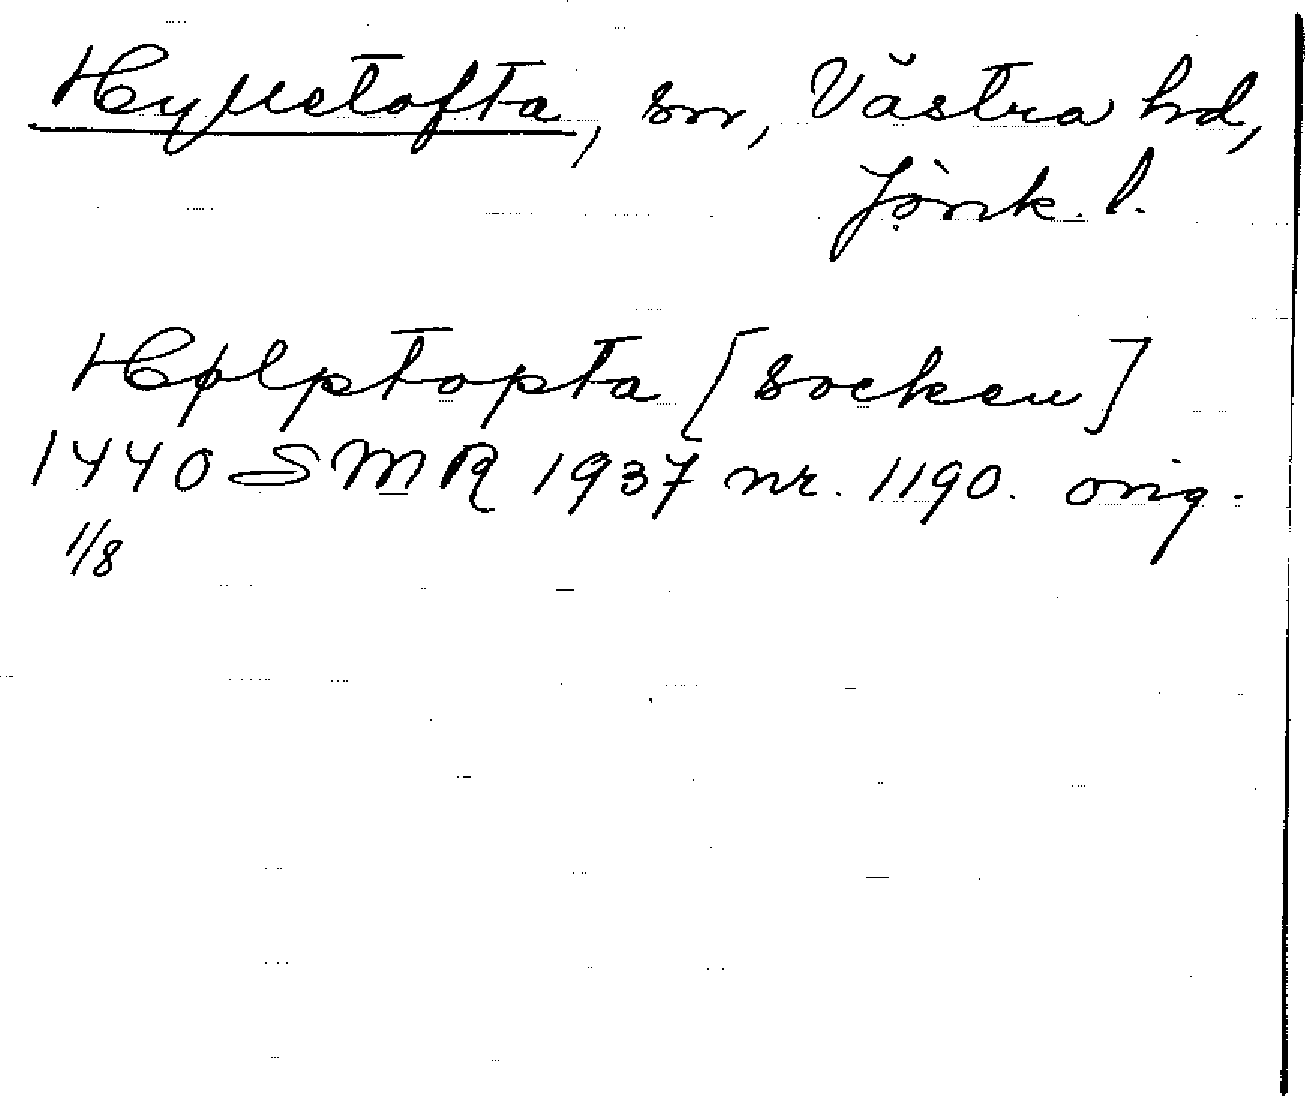 Hylletofta, sn, Västra hd,
Jönk. l.
Hølptopta [socken]
1440 SMR 1937 nr. 1190. orig.
1/8